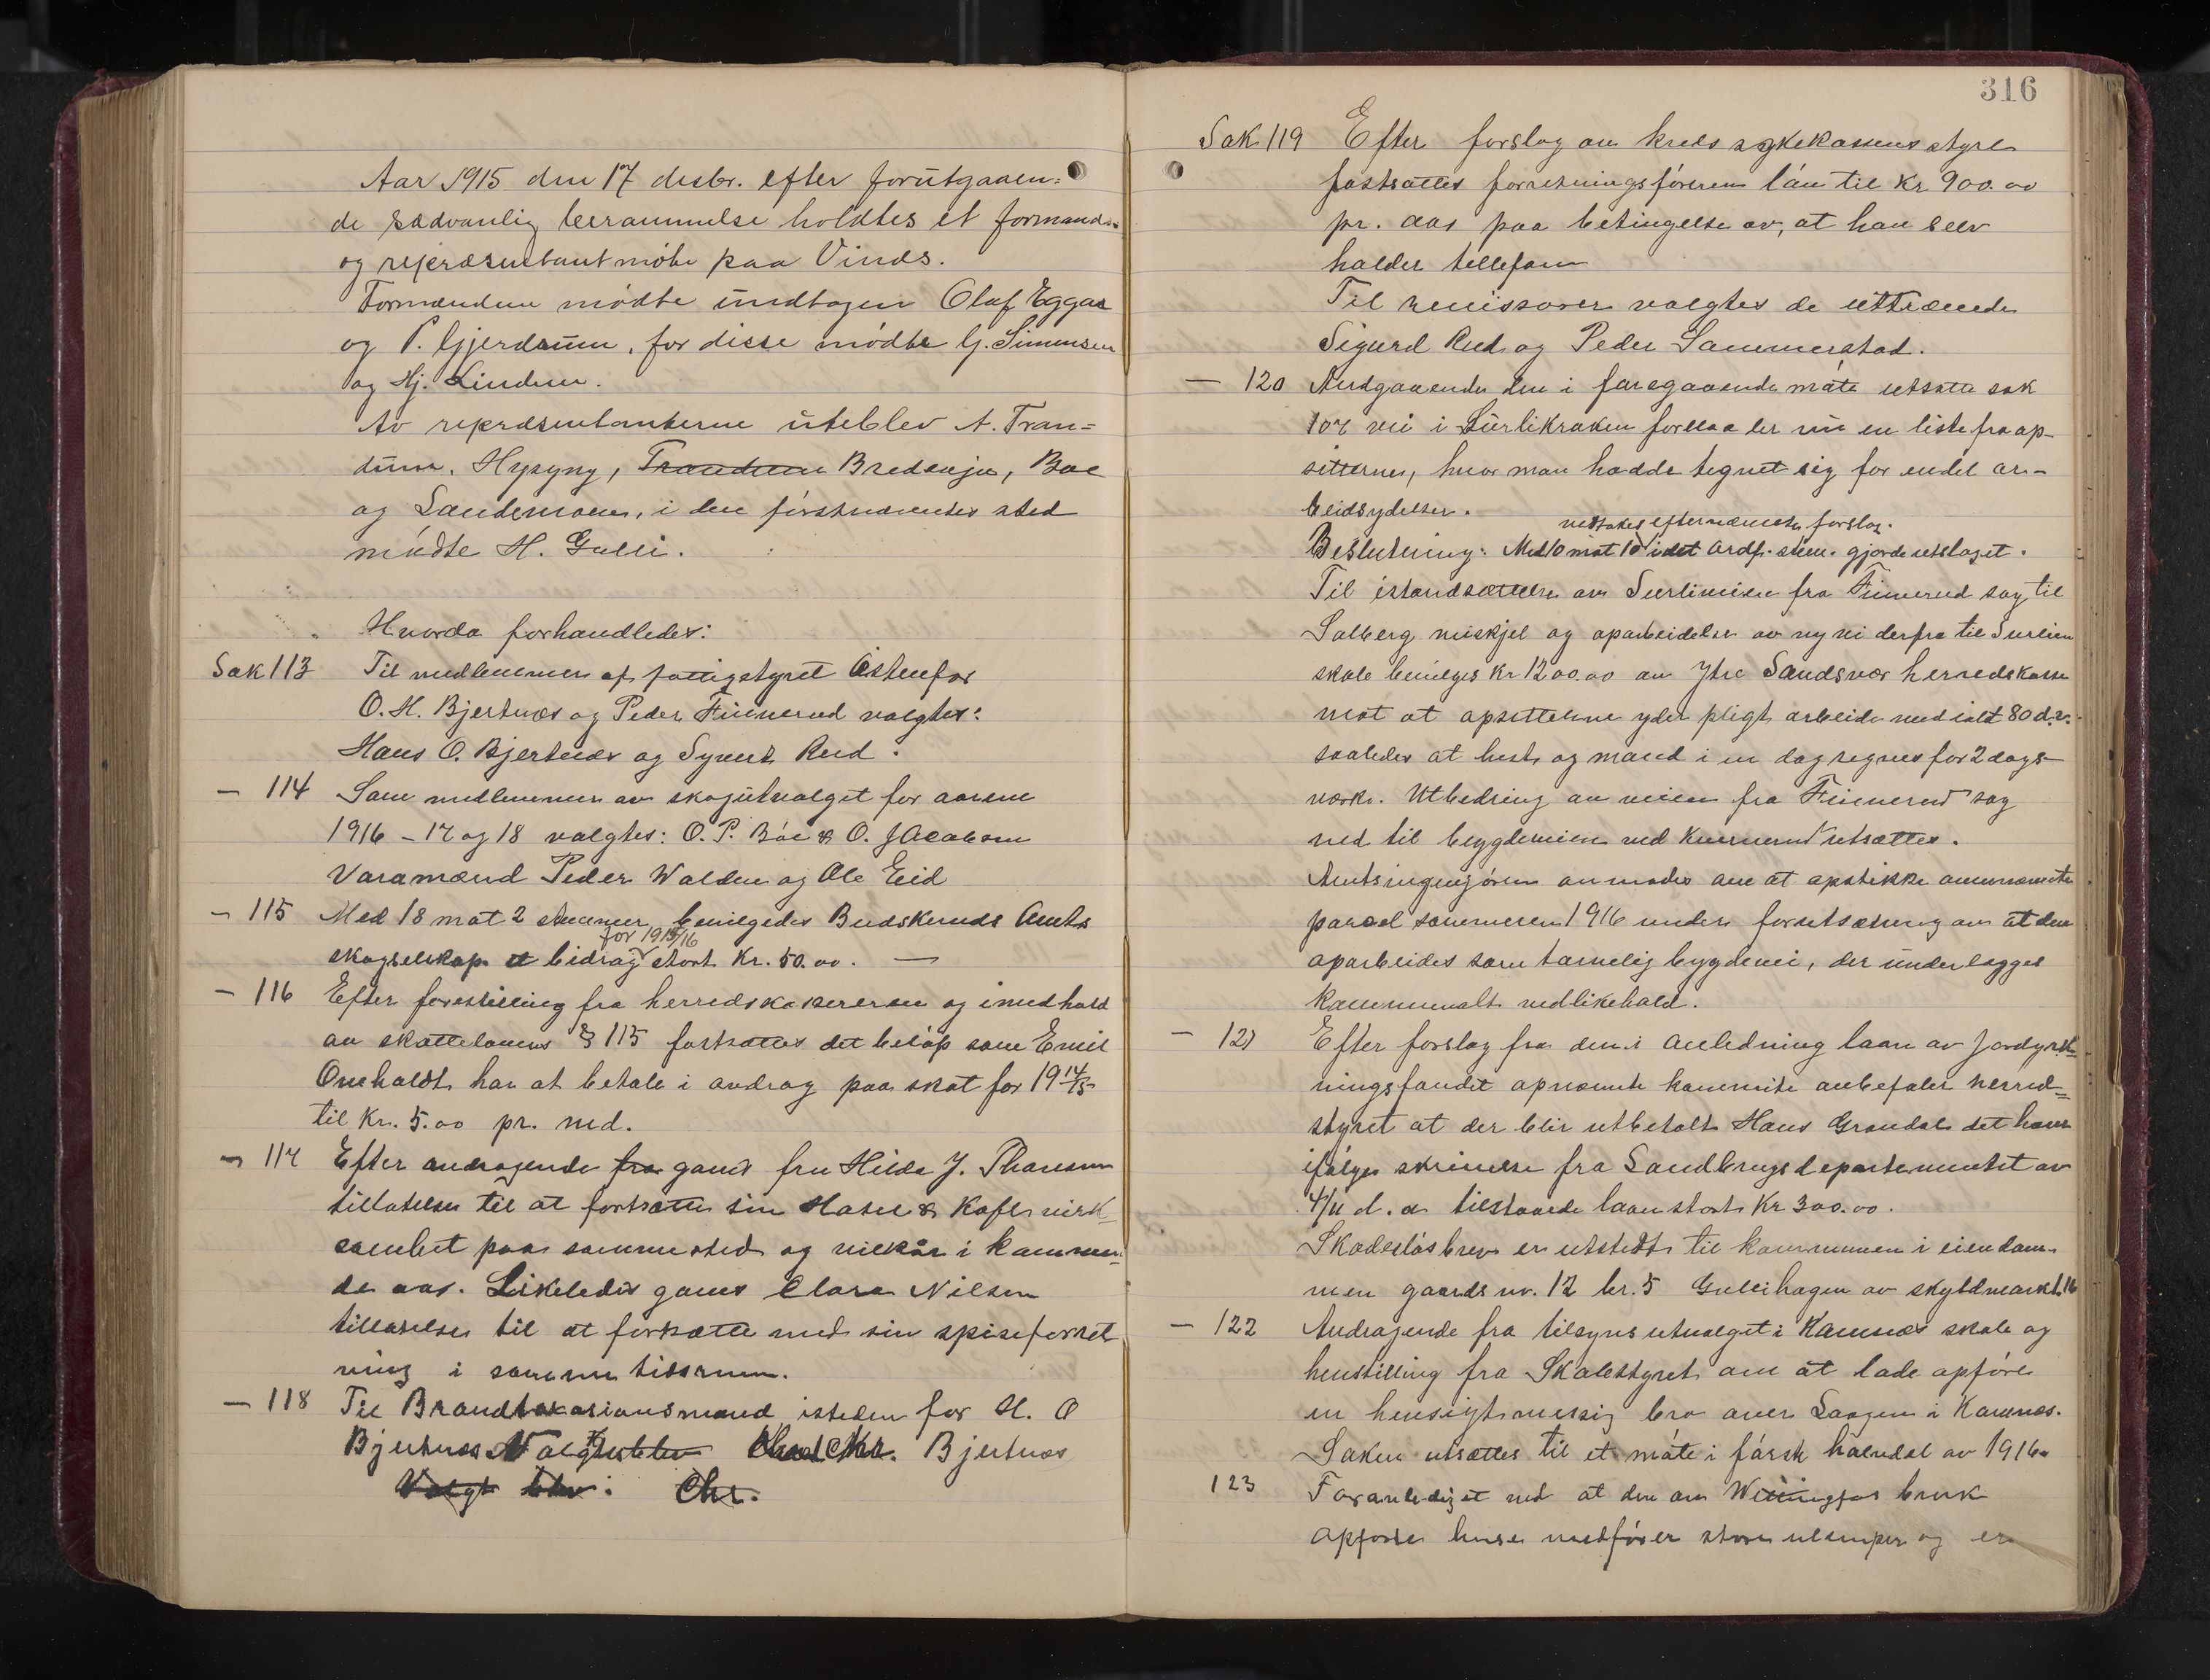 Aar 1915 den 17 desbr. efter forutgaaen-
de sædvanlig berammelse holdtes et formands-
og repræsentantmöte paa Vinds.
Formændene mödte undtagen Olaf Eggar
og P. Gjerdrum, for disse mödte G. Simensen
og Hj. Lindem.
Av repræsentanterne uteblev A. Tran-
dum, Trandum Bredveju, Boe
og Sandemoen, i den förstnævntes sted
mödte H. Gulli.
Hvorda forhandledes:
Sak 113 Til medlemmer af fattigstyret istenfor
O. H. Bjertnæs og Peder Finnerud valgtes:
Hans O. Bjertnæs og Syvert Rud.
— 114 Som medlemmer av skogutvalget for aarene
1916 – 17 og 18 valgtes: O. P. Böe & O. Jacobsen
Varamænd Peder Walden og Ole Eid
— 115 Med 18 mot 2 stemmer bevilgedes Buskeruds Amts
for 1915/16
skogselskap et bidrag stort Kr. 50.00. —
— 116 Efter forestilling fra herredskassereren og i medhold
av skattelovens § 115 fastsattes det belöp som Emil
Omholdt har at betale i avdrag paa skat for 1914/15
til Kr. 5.00 pr. md.
— 117 Efter andragende fra gaves fru Hilda J. Thoresen
tillatelse til at fortsætte sin Hotel & Kafe virk-
somhet paa samme sted og vilkår i kommen-
de aar. Likeledes gaves Clara Nilsen
tillatelse til at fortsætte med sin spiseforret
ning i samme tidsrum.
— 118 Til Brandtakstionsmand isteden for H. O
Bjertnæs Valgtes blev Chr. Bjertnæs
Valgt blev: Chr.
316
Sak 119 Efter forslag av kreds sykekassens styre
fastsattes forretningsförerens lön til Kr 900.00
pr. aar paa betingelse av, at han selv
holder tellefon
Til revissorer valgtes de uttrædende
Sigurd Rud og Peder Sammerstad.
— 120 Andgaaende den i foregaaende möte utsatte sak
107 vei i Surlikroken forelaa der nu en liste fra op-
sitterne, hvor man hadde tegnet sig for endel ar-
beidsydelser.
vedtokes efternævnte forslag.
Beslutning: Med 10 mot 10 idet ordf. stem. gjorde utslaget.
Til istandsættelse av Surliveien fra Finnerud sag til
Solberg veiskjel og oparbeidelse av ny vei derfra til Surlien
skole bevilges Kr 1200.00 av Ytre Sandsvær herredskasse
mot at opsitterne yder pligt arbeide med ialt 80 d.v.
saaledes at hest og mand i en dag regnes for 2 dags-
verk. Utbedring av veien fra Finnerud sag
ned til bygdeveien ved Kvernerud utsættes.
Amtsingenjören anmodes om at opstikke omnævnte
parsel sommeren 1916 under forutsætning av at den
oparbeides som tarvelig bygdevei, der underlægges
kommunalt vedlikehold.
— 121 Efter forslag fra den i anledning laan av Jorddyrk-
ningsfondet opnævnte komite anbefaler herred-
styret at der blir utbetalt Hans Grøndal det ham
ifölge skrivelse fra Landbrugsdepartementet av
4/11 d. a. tilstaaede laan stort Kr 300.00.
Skadeslösbrev er utstedt til kommunen i eiendom-
men gaards nr. 12 br. 5 Gullihagen av skyldmark 1.16
— 122 Andragende fra tilsynsutvalget i Komnæs skole og
henstilling fra Skolestyret om at lade opföre
en hensigtsmessig bro over Laagen i Komnæs.
Saken utsættes til et möte i först halvdel av 1916.
123 Foranlediget ved at den av Wittingfos bruk
opförte hvser medförer store ulemper og er